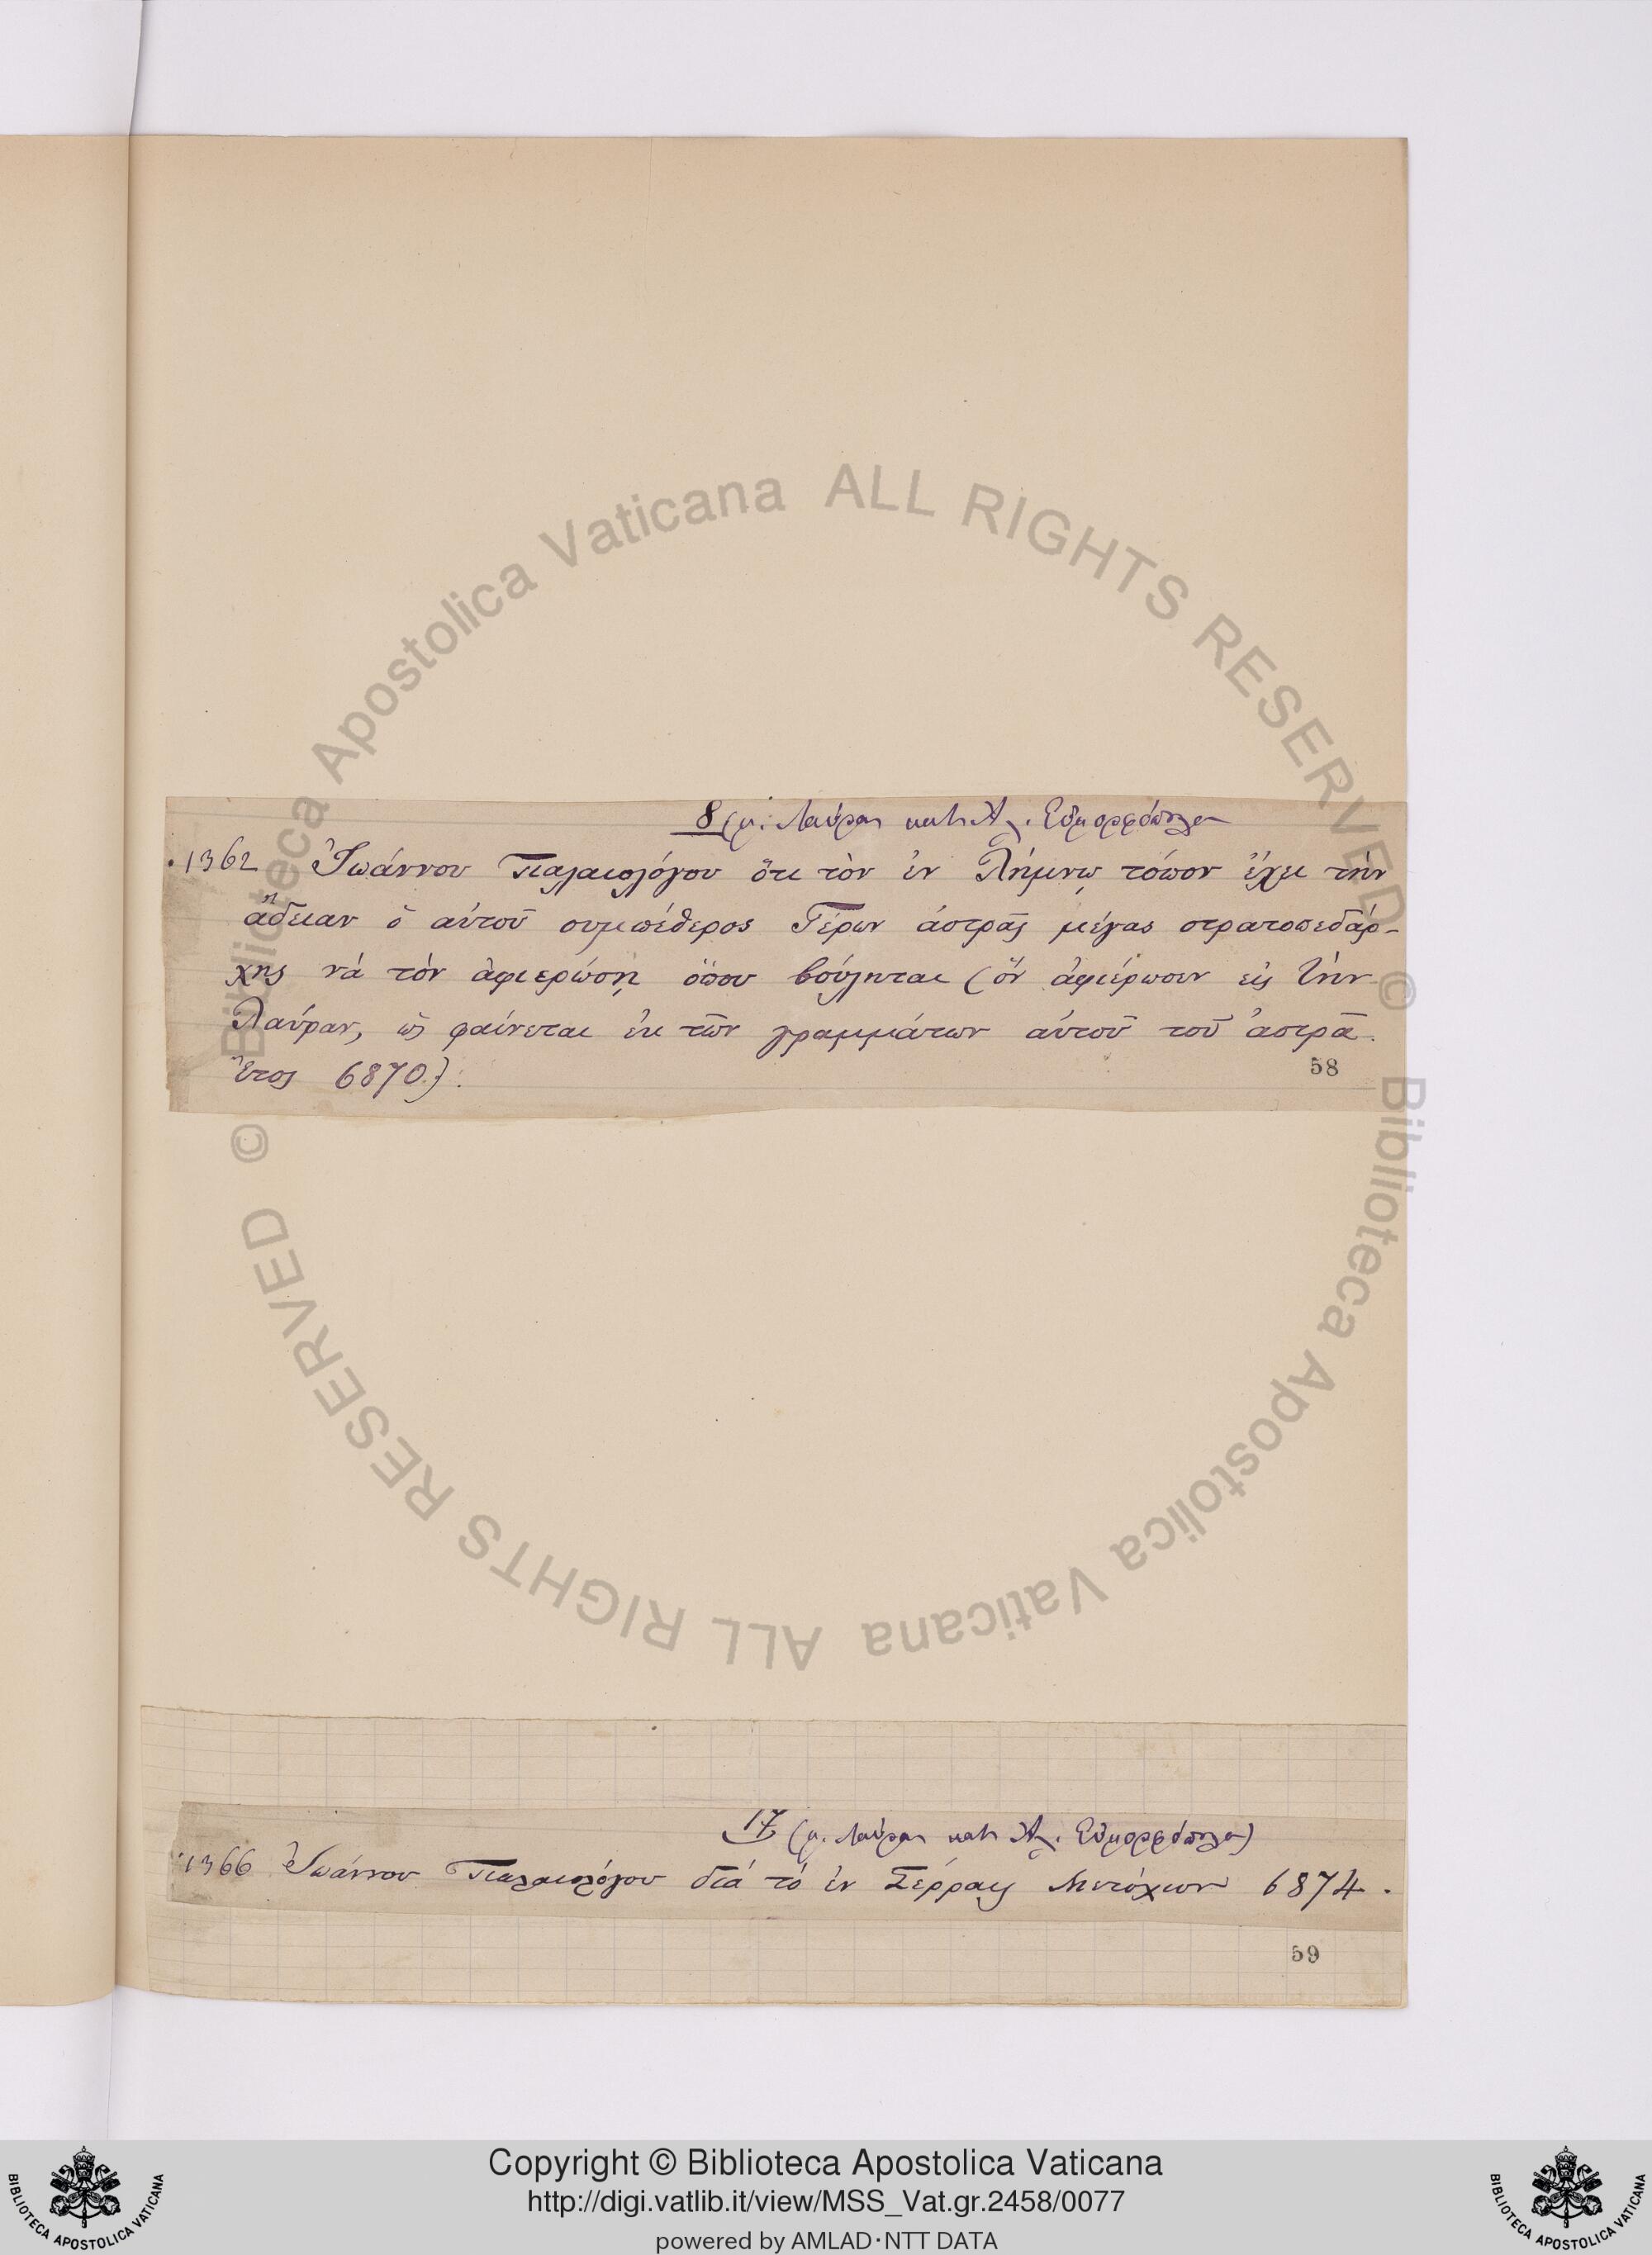 8 (μ. Λαύρας κατὰ Ἀλ. Εὐμορφόπουλον
1362 Ἰωάννου Παλαιολόγου ὅτι τὸν ἐν Λήμνῳ τόπον ἔχει τὴν
ἄδειαν ὁ αὐτοῦ συμπέθερος Γέρων ἀστρᾶς μέγας στρατοπεδάρ-
χης νὰ τὸν ἀφιερώσῃ ὅπου βούληται (ὅν ἀφιέρωσεν εἰς τὴν
Λαύραν, ὡς φαίνεται ἐκ τῶν γραμμάτων αὐτοῦ τοῦ ἀστρᾶ.
ἔτος 6870.)
58
17 (μ. Λαύρας κατὰ Ἀλ. Εὐμορφόπουλον)
1366 Ἰωάννου Παλαιολόγου διὰ τὸ ἐν Σέρραις Μετόχιον 6874.
59
© Biblioteca Apostolica Vaticana ALL RIGHTS RESERVED
© Biblioteca Apostolica Vaticana ALL RIGHTS RESERVED
Copyright © Biblioteca Apostolica Vaticana
http://digi.vatlib.it/view/MSS_Vat.gr.2458/0077
powered by AMLAD·NTT DATA
BIBLIOTECA APOSTOLICA VATICANA
BIBLIOTECA APOSTOLICA VATICANA